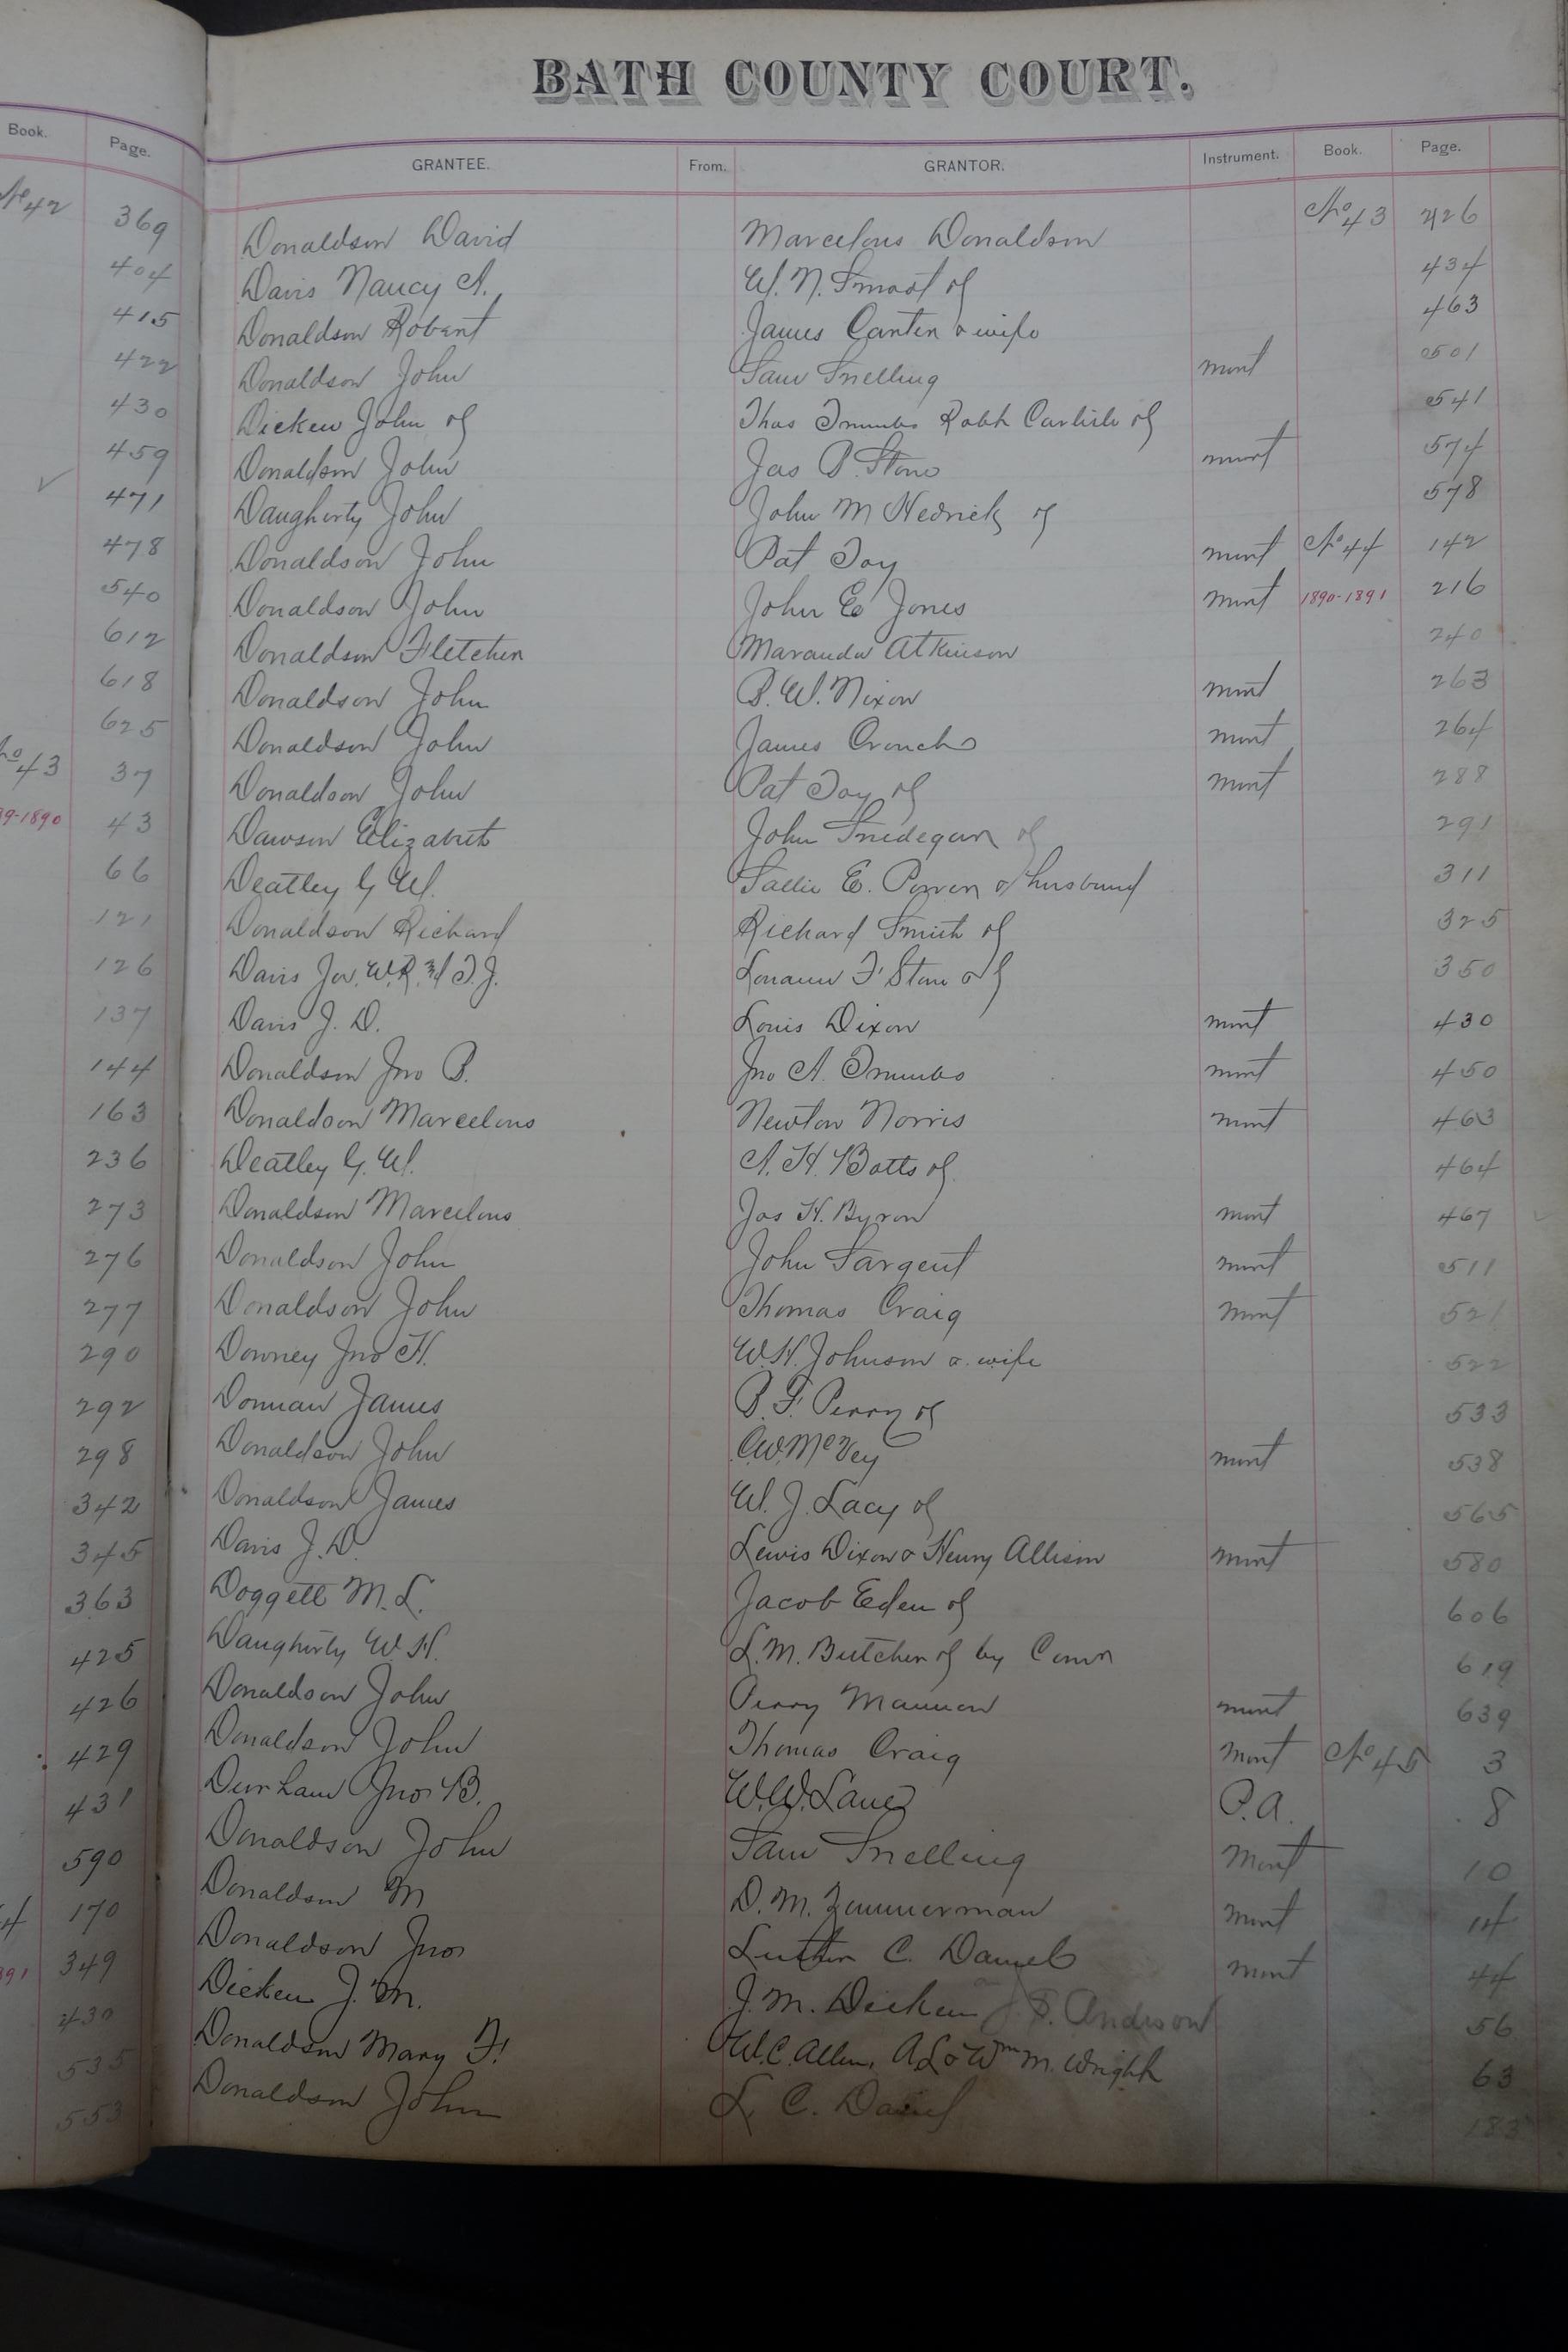 BATH COUNTY COURT.
Book. Page. GRANTEE. From. GRANTOR. Instrument. Book. Page.
No 42 369 Donaldson David Marcelous Donaldson No 43 426
404 Davis Nancy A. W. N. Smoot &c 434
415 Donaldson Robert James Carter & wife 463
422 Donaldson John Sam Snelling mort 501
430 Dicken John &c Thos Trumbo Robt Carlisle &c 541
459 Donaldson John Jas P. Stone mort 574
471 Daugherty John John M Hedrick &c 578
478 Donaldson John Pat Toy mort No 44 142
540 Donaldson John John E Jones mort 1890-1891 216
612 Donaldson Fletcher Maranda Atkinson 240
618 Donaldson John B. W. Nixon mort 263
625 Donaldson John James Crouch mort 264
No 43 37 Donaldson John Pat Toy &c mort 288
89-1890 43 Dawson Elizabeth John Snedegar &c 291
66 Deatley G. W. Sallie E. Power & husband 311
121 Donaldson Richard Richard Smith &c 325
126 Davis W.R. & T.J. F. Stone &c 350
137 Davis J. D. Louis Dixon mort 430
144 Donaldson Jno P. Jno A. Trumbo mort 450
163 Donaldson Marcelous Newton Norris mort 463
236 Deatley G. W. A. H. Botts &c 464
273 Donaldson Marcelous Jas H. Byron mort 467
276 Donaldson John John Sargent mort 511
277 Donaldson John Thomas Craig mort 521
290 Downey Jno H. W. H. Johnson & wife 522
292 Dorman James B. F. Perry &c 533
298 Donaldson John C.W. McVey mort 538
342 Donaldson James W. J. Lacy &c 565
345 Davis J. D. Lewis Dixon & Henry Allison mort 580
363 Doggett M. L. Jacob Eden &c 606
425 Daugherty W. H. L. M. Butcher &c by Comr 619
426 Donaldson John Perry Mannon mort 639
429 Donaldson John Thomas Craig mort No 45 3
431 Durham Jno. B. W. W. Lane P.A. 8
590 Donaldson John Sam Snelling Mort 10
4 170 Donaldson M D. M. Zimmerman mort 14
891 349 Donaldson Jno Luther C. Daniel mort 44
430 Dicken J. M. J. M. Dicken J. S. Andrson 56
535 Donaldson Mary F. W. C. Allen, A L & Wm M. Wright 63
553 Donaldson John L. C. Daniel 183